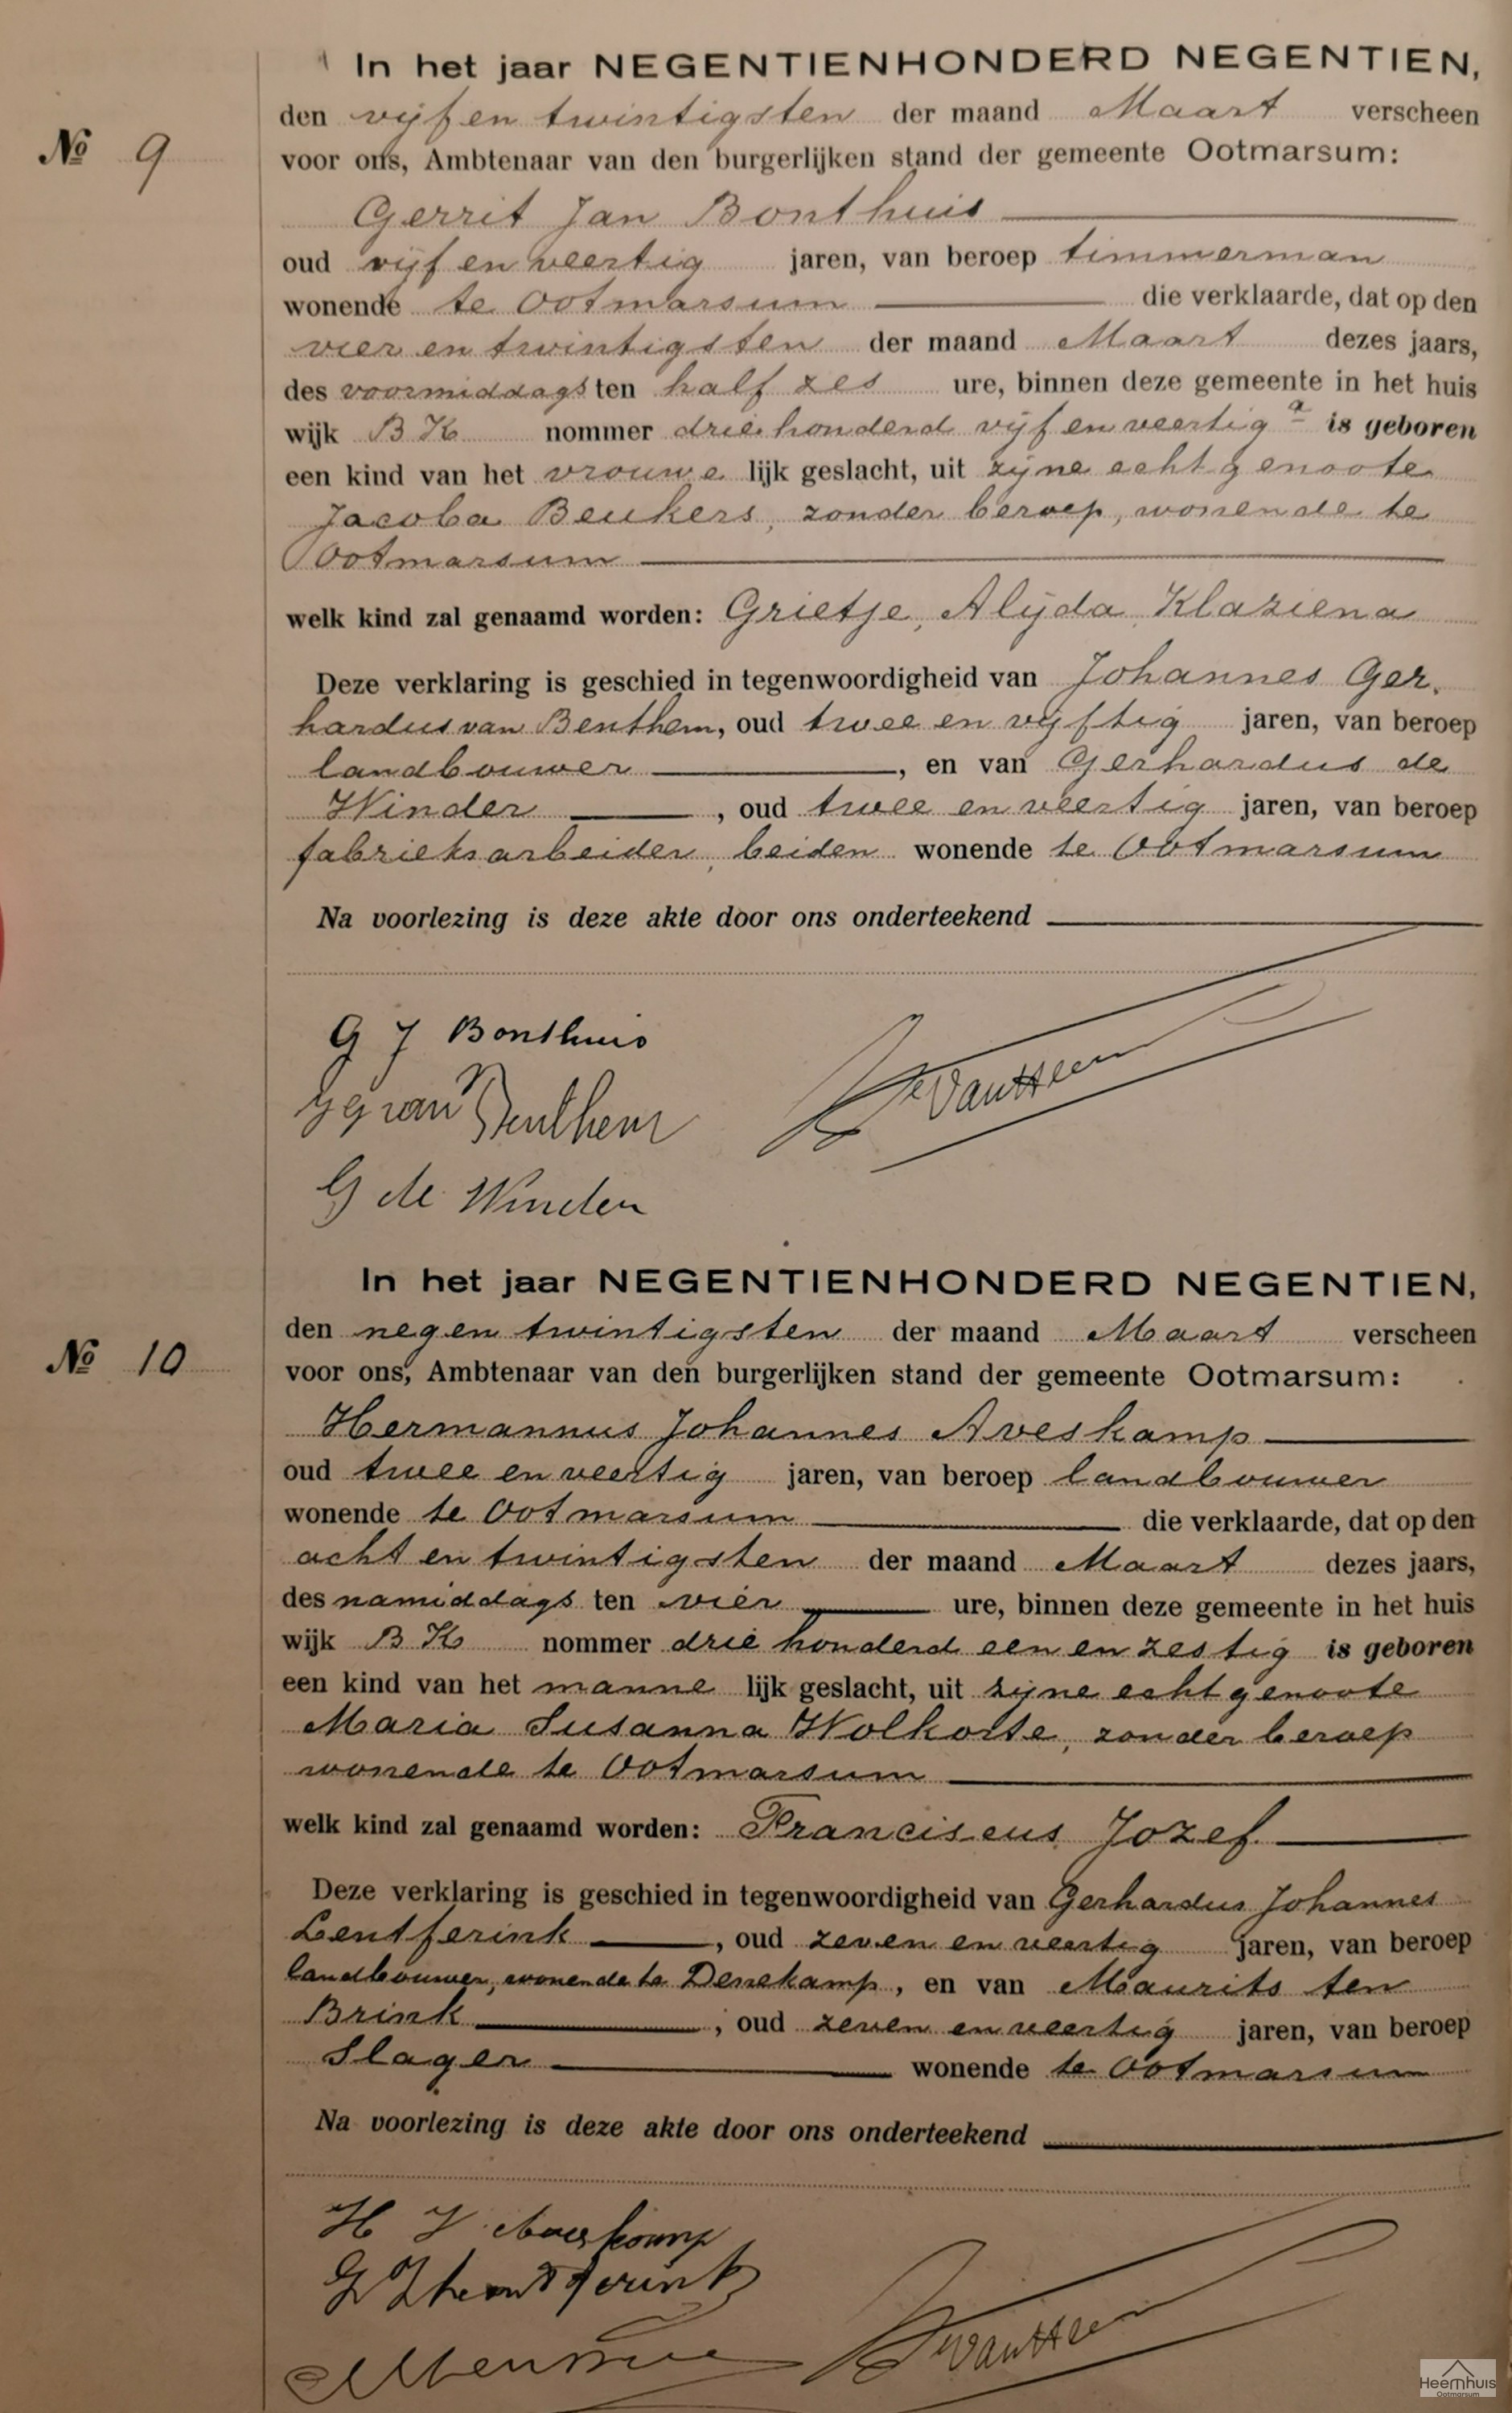 In het jaar NEGENTIENHONDERD NEGENTIEN,
den vijf en twintigsten der maand Maart verscheen
No 9
voor ons, Ambtenaar van den burgerlijken stand der gemeente Ootmarsum:
Gerrit Jan Bonthuis
oud vijf en veertig jaren, van beroep timmerman
wonende te Ootmarsum die verklaarde, dat op den
vier en twintigsten der maand Maart dezes jaars,
des voormiddags ten half zes ure, binnen deze gemeente in het huis
wijk B K nommer driehonderd vijf en veertig a is geboren
een kind van het vrouwe lijk geslacht, uit zijne echtgenoote
Jacoba Beukers, zonder beroep, wonende te
Ootmarsum
welk kind zal genaamd worden: Grietje, Alijda Klaziena
Deze verklaring is geschied in tegenwoordigheid van Johannes Ger.
hardus van Benthem, oud twee en vijftig jaren, van beroep
landbouwer, en van Gerhardus de
Winder, oud twee en veertig jaren, van beroep
fabrieksarbeider, beiden wonende te Ootmarsum
Na voorlezing is deze akte door ons onderteekend
G J Bonthuis
J G van Benthem
G de Winder
In het jaar NEGENTIENHONDERD NEGENTIEN,
den negen twintigsten der maand Maart verscheen
No 10
voor ons, Ambtenaar van den burgerlijken stand der gemeente Ootmarsum:
Hermannus Johannes Aveskamp
oud twee en veertig jaren, van beroep landbouwer
wonende te Ootmarsum die verklaarde, dat op den
acht en twintigsten der maand Maart dezes jaars,
des namiddags ten vier ure, binnen deze gemeente in het huis
wijk B K nommer drie honderd een en zestig is geboren
een kind van het manne lijk geslacht, uit zijne echtgenoote
Maria Susanna Wolkotte, zonder beroep
wonende te Ootmarsum
welk kind zal genaamd worden: Franciscus Jozef
Deze verklaring is geschied in tegenwoordigheid van Gerhardus Johannes
Lentferink, oud zeven en veertig jaren, van beroep
landbouwer, wonende te Denekamp, en van Maurits ten
Brink, oud zeven en veertig jaren, van beroep
Slager wonende te Ootmarsum
Na voorlezing is deze akte door ons onderteekend
H J Aveskamp
G J Lentferink
Heemhuis
Ootmarsum